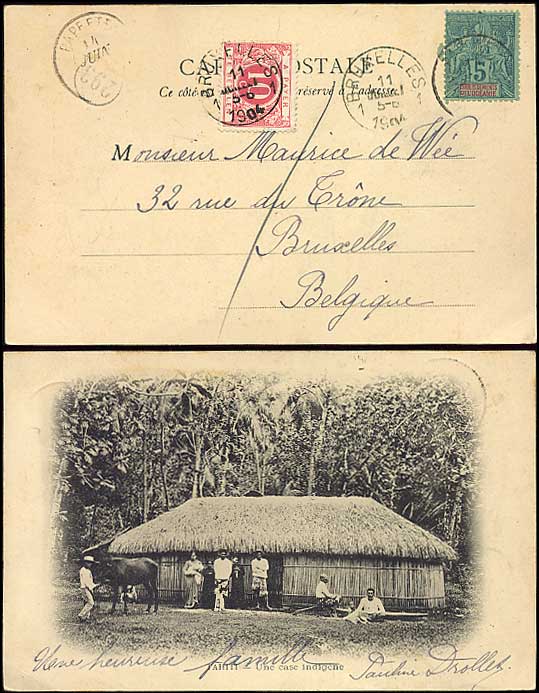 PAPEETE
14
JUIN
CARTE POSTALE
Ce côté réservé à l'adresse
A PAYER
10
BRUXELLES
11
5-6
1904
BRUXELLES
11
5-6
1904
5
Monsieur Maurice de Wée
32 rue du Trône
Bruxelles
Belgique
TAHITI - Une case indigène
Une heureuse famille
Pauline Drollet